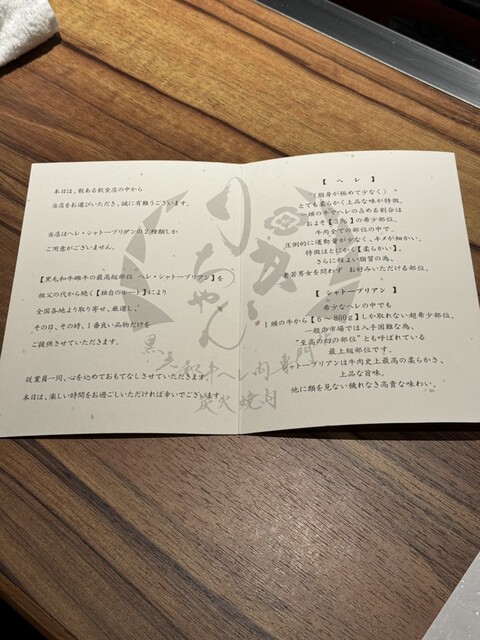 本日は、数ある飲食店の中から
当店をお選びいただき、誠に有難うございます。
当店はヘレ・シャトーブリアンの2種類しか
ご用意がございません。
【黒毛和牛雌牛の最高級部位 ヘレ・シャトーブリアン】を
祖父の代から続く【独自のルート】により
全国各地より取り寄せ、厳選し、
その日、その時、1番良い品物だけを
ご提供させていただきます。
従業員一同、心を込めておもてなしさせていただきます。
本日は、楽しい時間をお過ごしいただければ幸いでございます。
【 ヘレ 】
（脂身が極めて少なく）、
とても柔らかく上品な味が特徴。
一頭の牛でヘレの占める割合は
およそ【3%】の希少部位。
牛肉全ての部位の中で、
圧倒的に運動量が少なく、キメが細かい。
特徴はとにかく【柔らかい】。
さらに程よい脂質の為、
老若男女を問わず お好みいただける部位。
【 シャトーブリアン 】
希少なヘレの中でも
1頭の牛から【6～800g】しか取れない超希少部位。
一般の市場では入手困難な為、
"至高の幻の部位"とも呼ばれている
最上級部位です。
シャトーブリアンは牛肉史上最高の柔らかさ、
上品な旨味。
他に類を見ない穢れなき高貴な味わい。
黒毛和牛ヘレ肉専門店
炭火焼肉